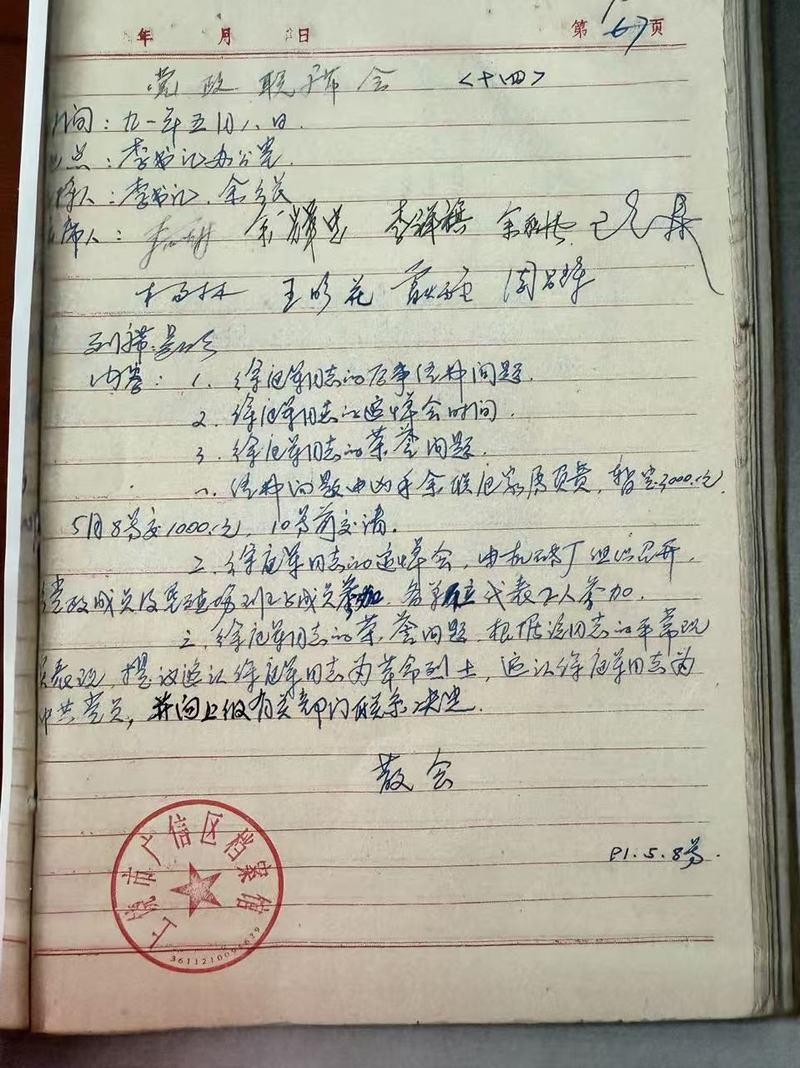 年 月 日 第 67 页
党政联席会 <十四>
时间：九一年五月八日.
地点：李书记办公室.
持人：李书记、余乡长
席人： 李祥旗
杨林 王彩花
列席:
内容：1. 徐冠军同志的后事 问题.
2. 徐冠军同志的追悼会时间.
3. 徐冠军同志的荣誉问题.
一、 问题由凶手余 家属负责，暂定3000.元
5月8号交1000.元，10号前交清.
二、徐冠军同志的追悼会，由机砖厂组织召开，
党政成员及 班子成员参加，各单位代表2人参加.
三、徐冠军同志的荣誉问题，根据该同志的平常现
实表现，提议追认徐冠军同志为革命烈士，追认徐冠军同志为
中共党员，并向上级有关部门联系决定.
散会
91.5.8号.
上饶市广信区档案馆